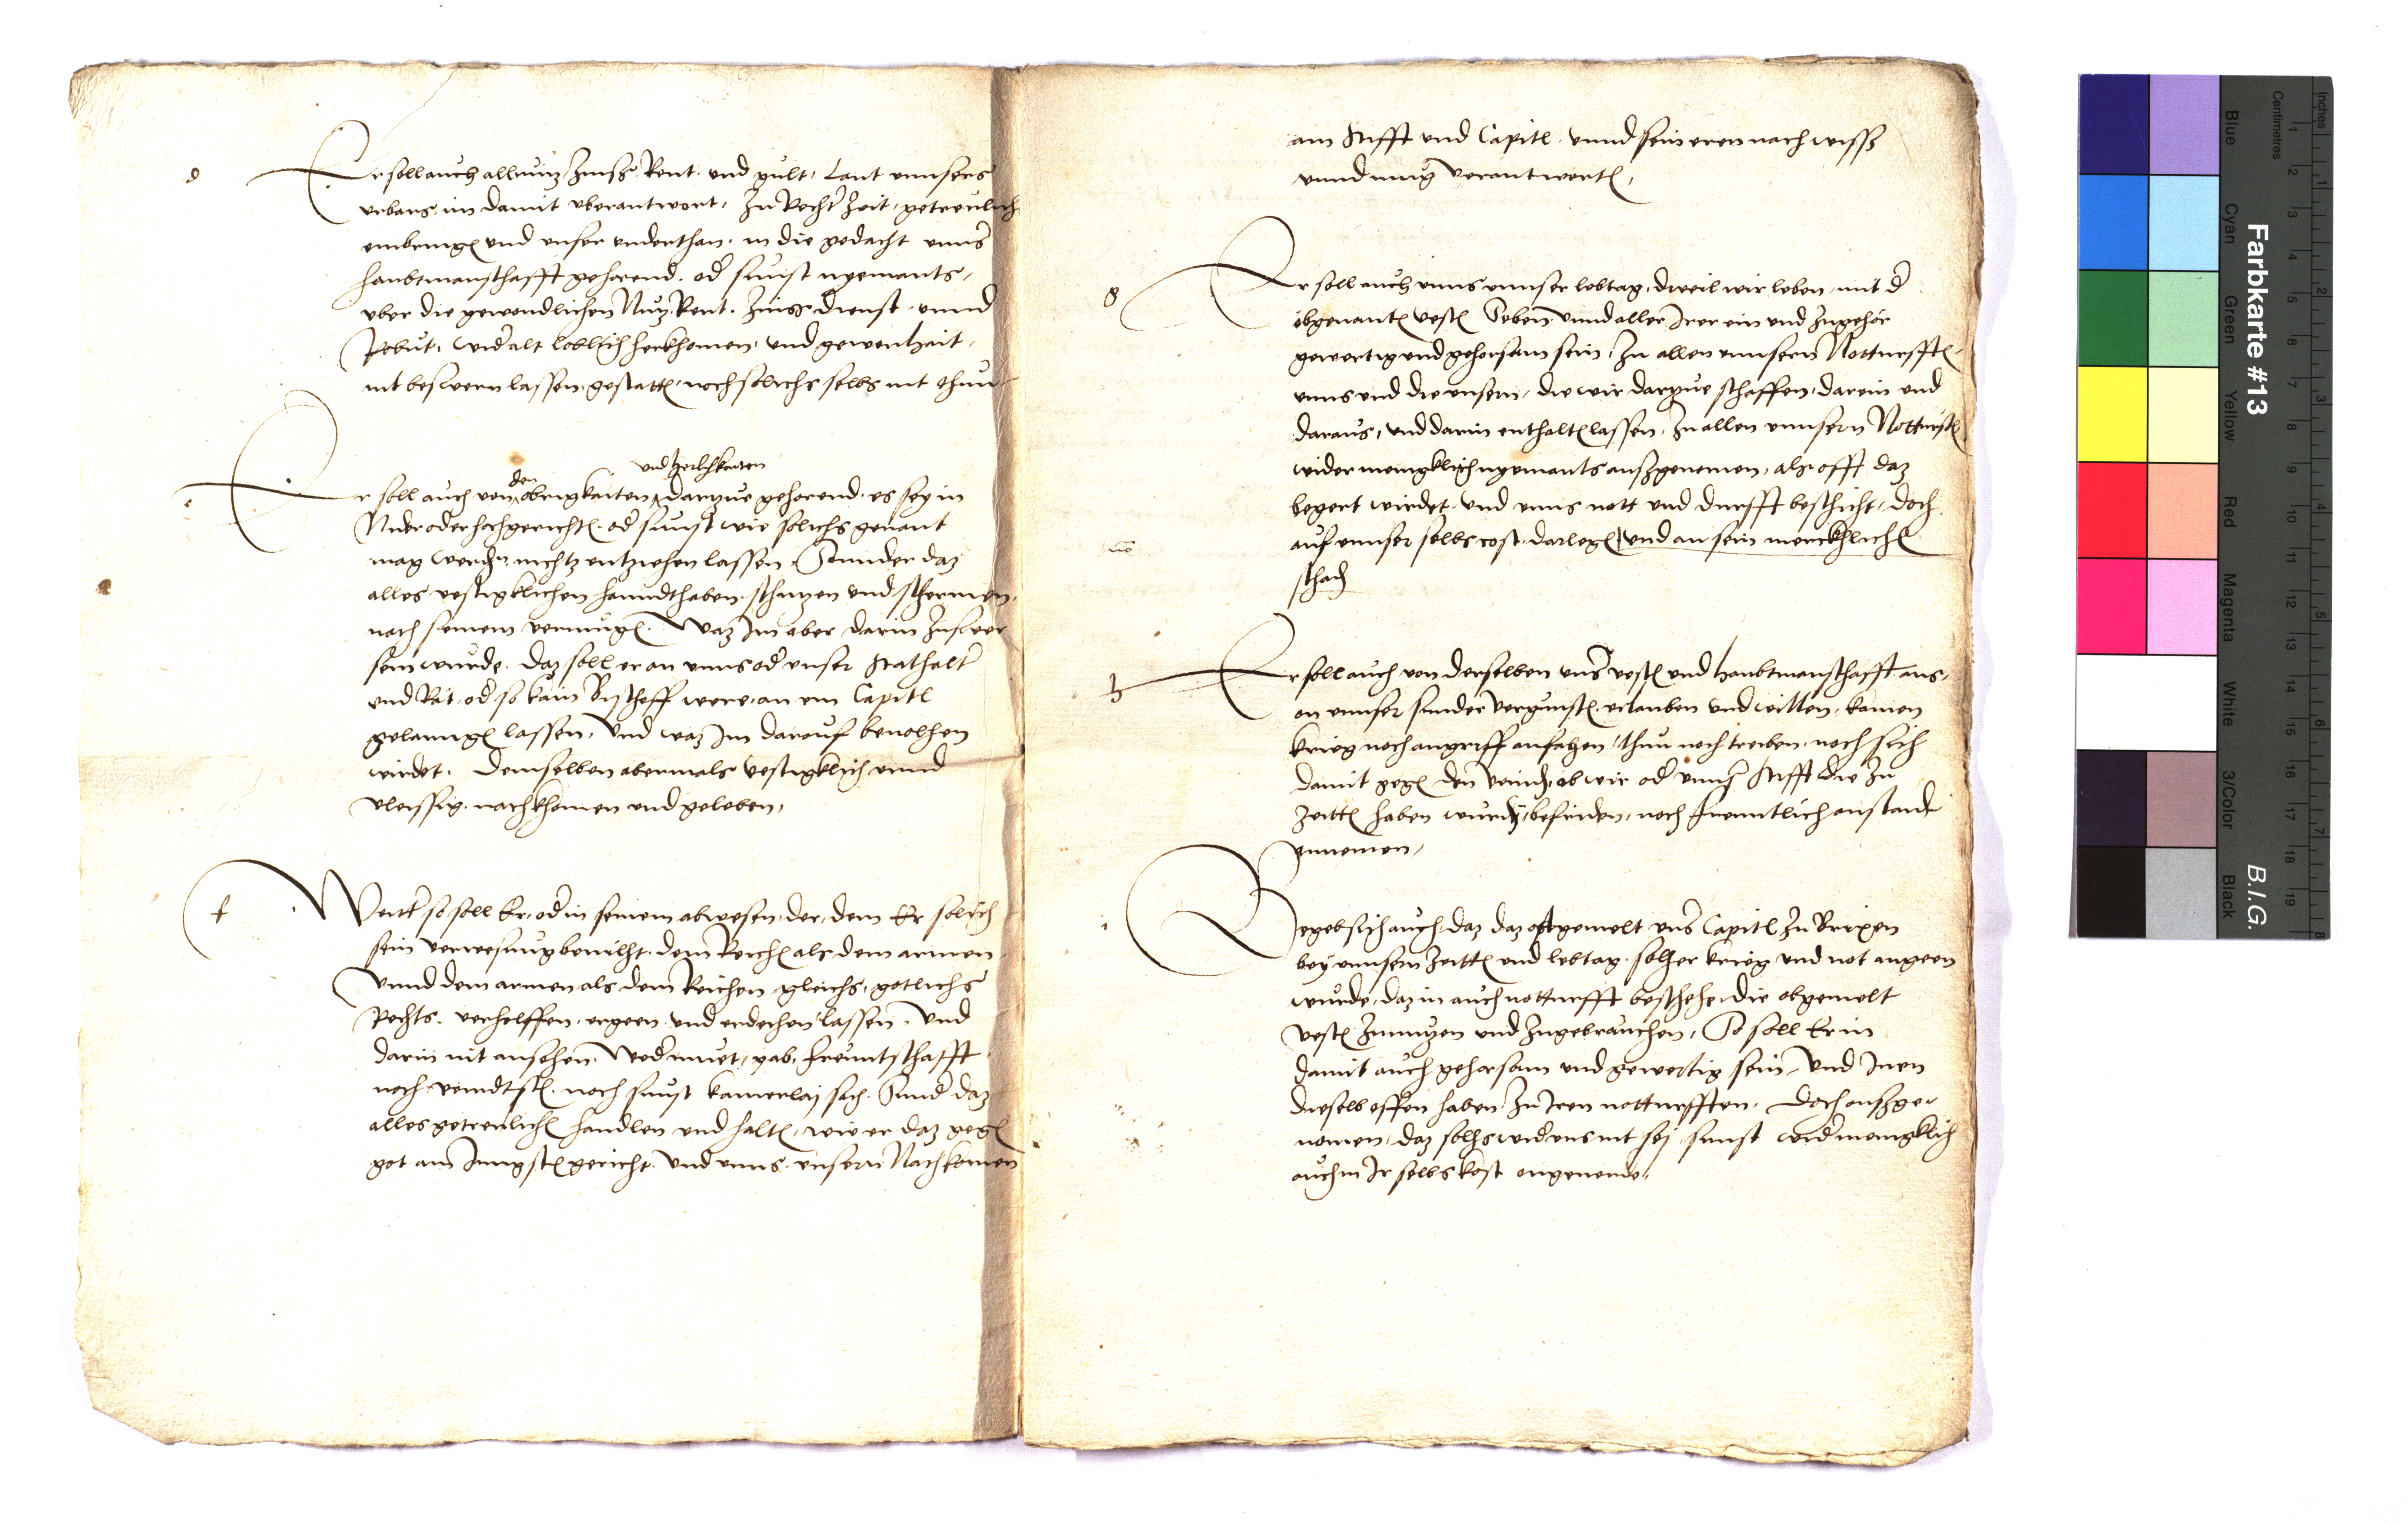 d
Er soll auch all nutz Zinsß Rent und gult, Laut unnsers
urbars, im damit uberantwort, Zu Rechter Zeit, getreulich
einbringen und unser underthan, in die gedacht unnser
haubtmanschafft gehorend, oder sunst nyemants,
uber die gewondlichen Nutz, Rent, Zinß, dienst unnd
Robut, wider alt loblich herkhomen, und gewonhait,
nit beswern lassen, gestatten, noch solichs selbs nit thun
e
und herlichkaiten
den
Er soll auch von obrigkaiten, dartzue gehorend, es sey in
Nider oder hochgerichten, oder sunst wie solichs genant
mag werden, nichtz entziehen lassen, Sonnder daz
alles vestigklichen hanndthaben, schutzen und schermen,
nach seinem vermugen. Waz im aber darin zuswer
sein wurde, daz soll er an unns oder unser Stathalter
und Rät, oder so kain Bischoff were, an ein Capitl
gelanngen lassen, Und waz im darauf bevolhen
wirdet, demselben abermals vestigklich unnd
vleissig nachkhomen und geleben,
f
Wenter so soll Er, oder in seinem abwesen, der, dem Er solich
sein verwesung bevilht, dem Reichen als dem armen
Unnd dem armen als dem Reichen gleichs, gotlichs
Rechts verhelffen, ergeen und erdechen lassen, Und
darin nit ansehen, Weder muet, gab, freuntschafft
noch veindtsch. noch sunst kainerlaj sach. Sunder daz
alles getreulichen handlen und halten, wie er daz gegen
got am Jungsten gericht, Und unns, unsern Nachkomen
am Stifft und Capitl, unnd sein eren nach wisß
unnd mug verantworten,
g
Er soll auch unns unnser lebtag, dweil wir leben, mit der
obgenanten vesten Seben unnd aller Irer ein und zugehör
gewertig und gehorsam sein, Zu allen unnsern Notturfften,
unns und die unsern, die wir dartzue schaffen, darein und
daraus, und darin enthalten lassen, Zu allen unnsern Notturften
wider menigklich nyemants außgenomen, als offt daz
begert wirdet, und unns nott und durfft beschicht, doch
auf unnser selbs cost, darlegen, und an sein merckhlichen
schaden
h
Er soll auch von derselben unnser vesten und haubtmanschafft aus,
on unnser sunder vergunsten, erlauben und willen, kainen
krieg noch angriff anfahen, thun noch treiben, noch sich
damit gegen den veinden, ob wir oder unnser Stifft die zu
Zeitten haben wurden, befriden, noch freuntlich anstand
annemen,
i
Begeb sich auch, daz daz oftgemelt unnser Capitl zu Brixen
bey unnsern Zeitten und lebtag, solher krieg und not angeen
wurde, daz in auch notturfft beschehe, die obgemelt
vesten zunutzen und zugebrauchen, So soll Er in
damit auch gehorsam und gewertig sein, Und Inen
dieselb offen haben zu Iren notturfften. Doch außge-
nomen, daz solhs wider uns nit sej, sunst wider menigklich
auch in Ir selbs kost